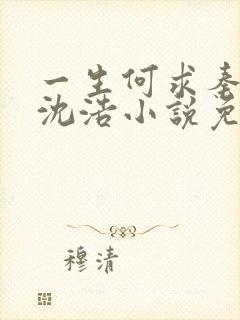 一生何求秦
沈浩小説免
穆清